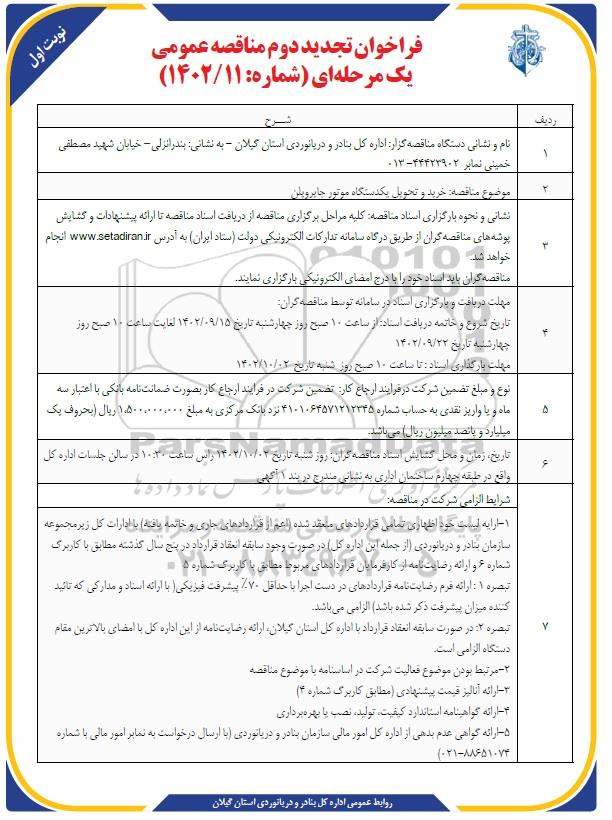 نوبت اول
فراخوان تجدید دوم مناقصه عمومی
یک مرحله‌ای (شماره: ۱۴۰۲/۱۱)
ردیف
شـــرح
۱
نام و نشانی دستگاه مناقصه‌گزار: اداره کل بنادر و دریانوردی استان گیلان – به نشانی: بندرانزلی– خیابان شهید مصطفی
خمینی نمابر ۴۴۴۲۳۹۰۲-۰۱۳
۲
موضوع مناقصه: خرید و تحویل یکدستگاه موتور جابروپلن
۳
نشانی و نحوه بارگزاری اسناد مناقصه: کلیه مراحل برگزاری مناقصه از دریافت اسناد مناقصه تا ارائه پیشنهادات و گشایش
پوشه‌های مناقصه‌گران از طریق درگاه سامانه تدارکات الکترونیکی دولت (ستاد ایران) به آدرس www.setadiran.ir انجام
خواهد شد.
مناقصه‌گران باید اسناد خود را با درج امضای الکترونیکی بارگزاری نمایند.
۴
مهلت دریافت و بارگزاری اسناد در سامانه توسط مناقصه‌گران:
تاریخ شروع و خاتمه دریافت اسناد: از ساعت ۱۰ صبح روز چهارشنبه تاریخ ۱۴۰۲/۰۹/۱۵ لغایت ساعت ۱۰ صبح روز
چهارشنبه تاریخ ۱۴۰۲/۰۹/۲۲
مهلت بارگذاری اسناد : تا ساعت ۱۰ صبح روز شنبه تاریخ ۱۴۰۲/۱۰/۰۲
۵
نوع و مبلغ تضمین شرکت درفرایند ارجاع کار: تضمین شرکت در فرایند ارجاع کار بصورت ضمانت‌نامه بانکی با اعتبار سه
ماه و یا واریز نقدی به حساب شماره ۴۱۰۱۰۶۴۵۷۱۲۱۲۳۴۵ نزد بانک مرکزی به مبلغ ۱،۵۰۰،۰۰۰،۰۰۰ ریال (بحروف یک
میلیارد و پانصد میلیون ریال) می‌باشد.
۶
تاریخ، زمان و محل گشایش اسناد مناقصه‌گران: روز شنبه تاریخ ۱۴۰۲/۱۰/۰۲ راس ساعت ۱۰:۳۰ در سالن جلسات اداره کل
واقع در طبقه چهارم ساختمان اداری به نشانی مندرج در بند ۱ آگهی
۷
شرایط الزامی شرکت در مناقصه:
۱-ارایه لیست خود اظهاری تمامی قراردادهای منعقد شده (اعم از قراردادهای جاری و خاتمه یافته) با ادارات کل زیرمجموعه
سازمان بنادر و دریانوردی (از جمله این اداره کل) در صورت وجود سابقه انعقاد قرارداد در پنج سال گذشته مطابق با کاربرگ
شماره ۶ و ارائه رضایت‌نامه از کارفرمایان قراردادهای مربوط مطابق با کاربرگ شماره ۵
تبصره ۱ : ارائه فرم رضایت‌نامه قراردادهای در دست اجرا با حداقل ۷۰٪ پیشرفت فیزیکی( با ارائه اسناد و مدارکی که تائید
کننده میزان پیشرفت ذکر شده باشد) الزامی می‌باشد.
تبصره ۲: در صورت سابقه انعقاد قرارداد با اداره کل استان گیلان، ارائه رضایت‌نامه از این اداره کل با امضای بالاترین مقام
دستگاه الزامی است.
۲-مرتبط بودن موضوع فعالیت شرکت در اساسنامه با موضوع مناقصه
۳-ارائه آنالیز قیمت پیشنهادی (مطابق کاربرگ شماره ۴)
۴-ارائه گواهینامه استاندارد کیفیت، تولید، نصب یا بهره‌برداری
۵-ارائه گواهی عدم بدهی از اداره کل امور مالی سازمان بنادر و دریانوردی (با ارسال درخواست به نمابر امور مالی با شماره
۸۸۶۵۱۰۷۴-۰۲۱)
روابط عمومی اداره کل بنادر و دریانوردی استان گیلان
ParsNamadData